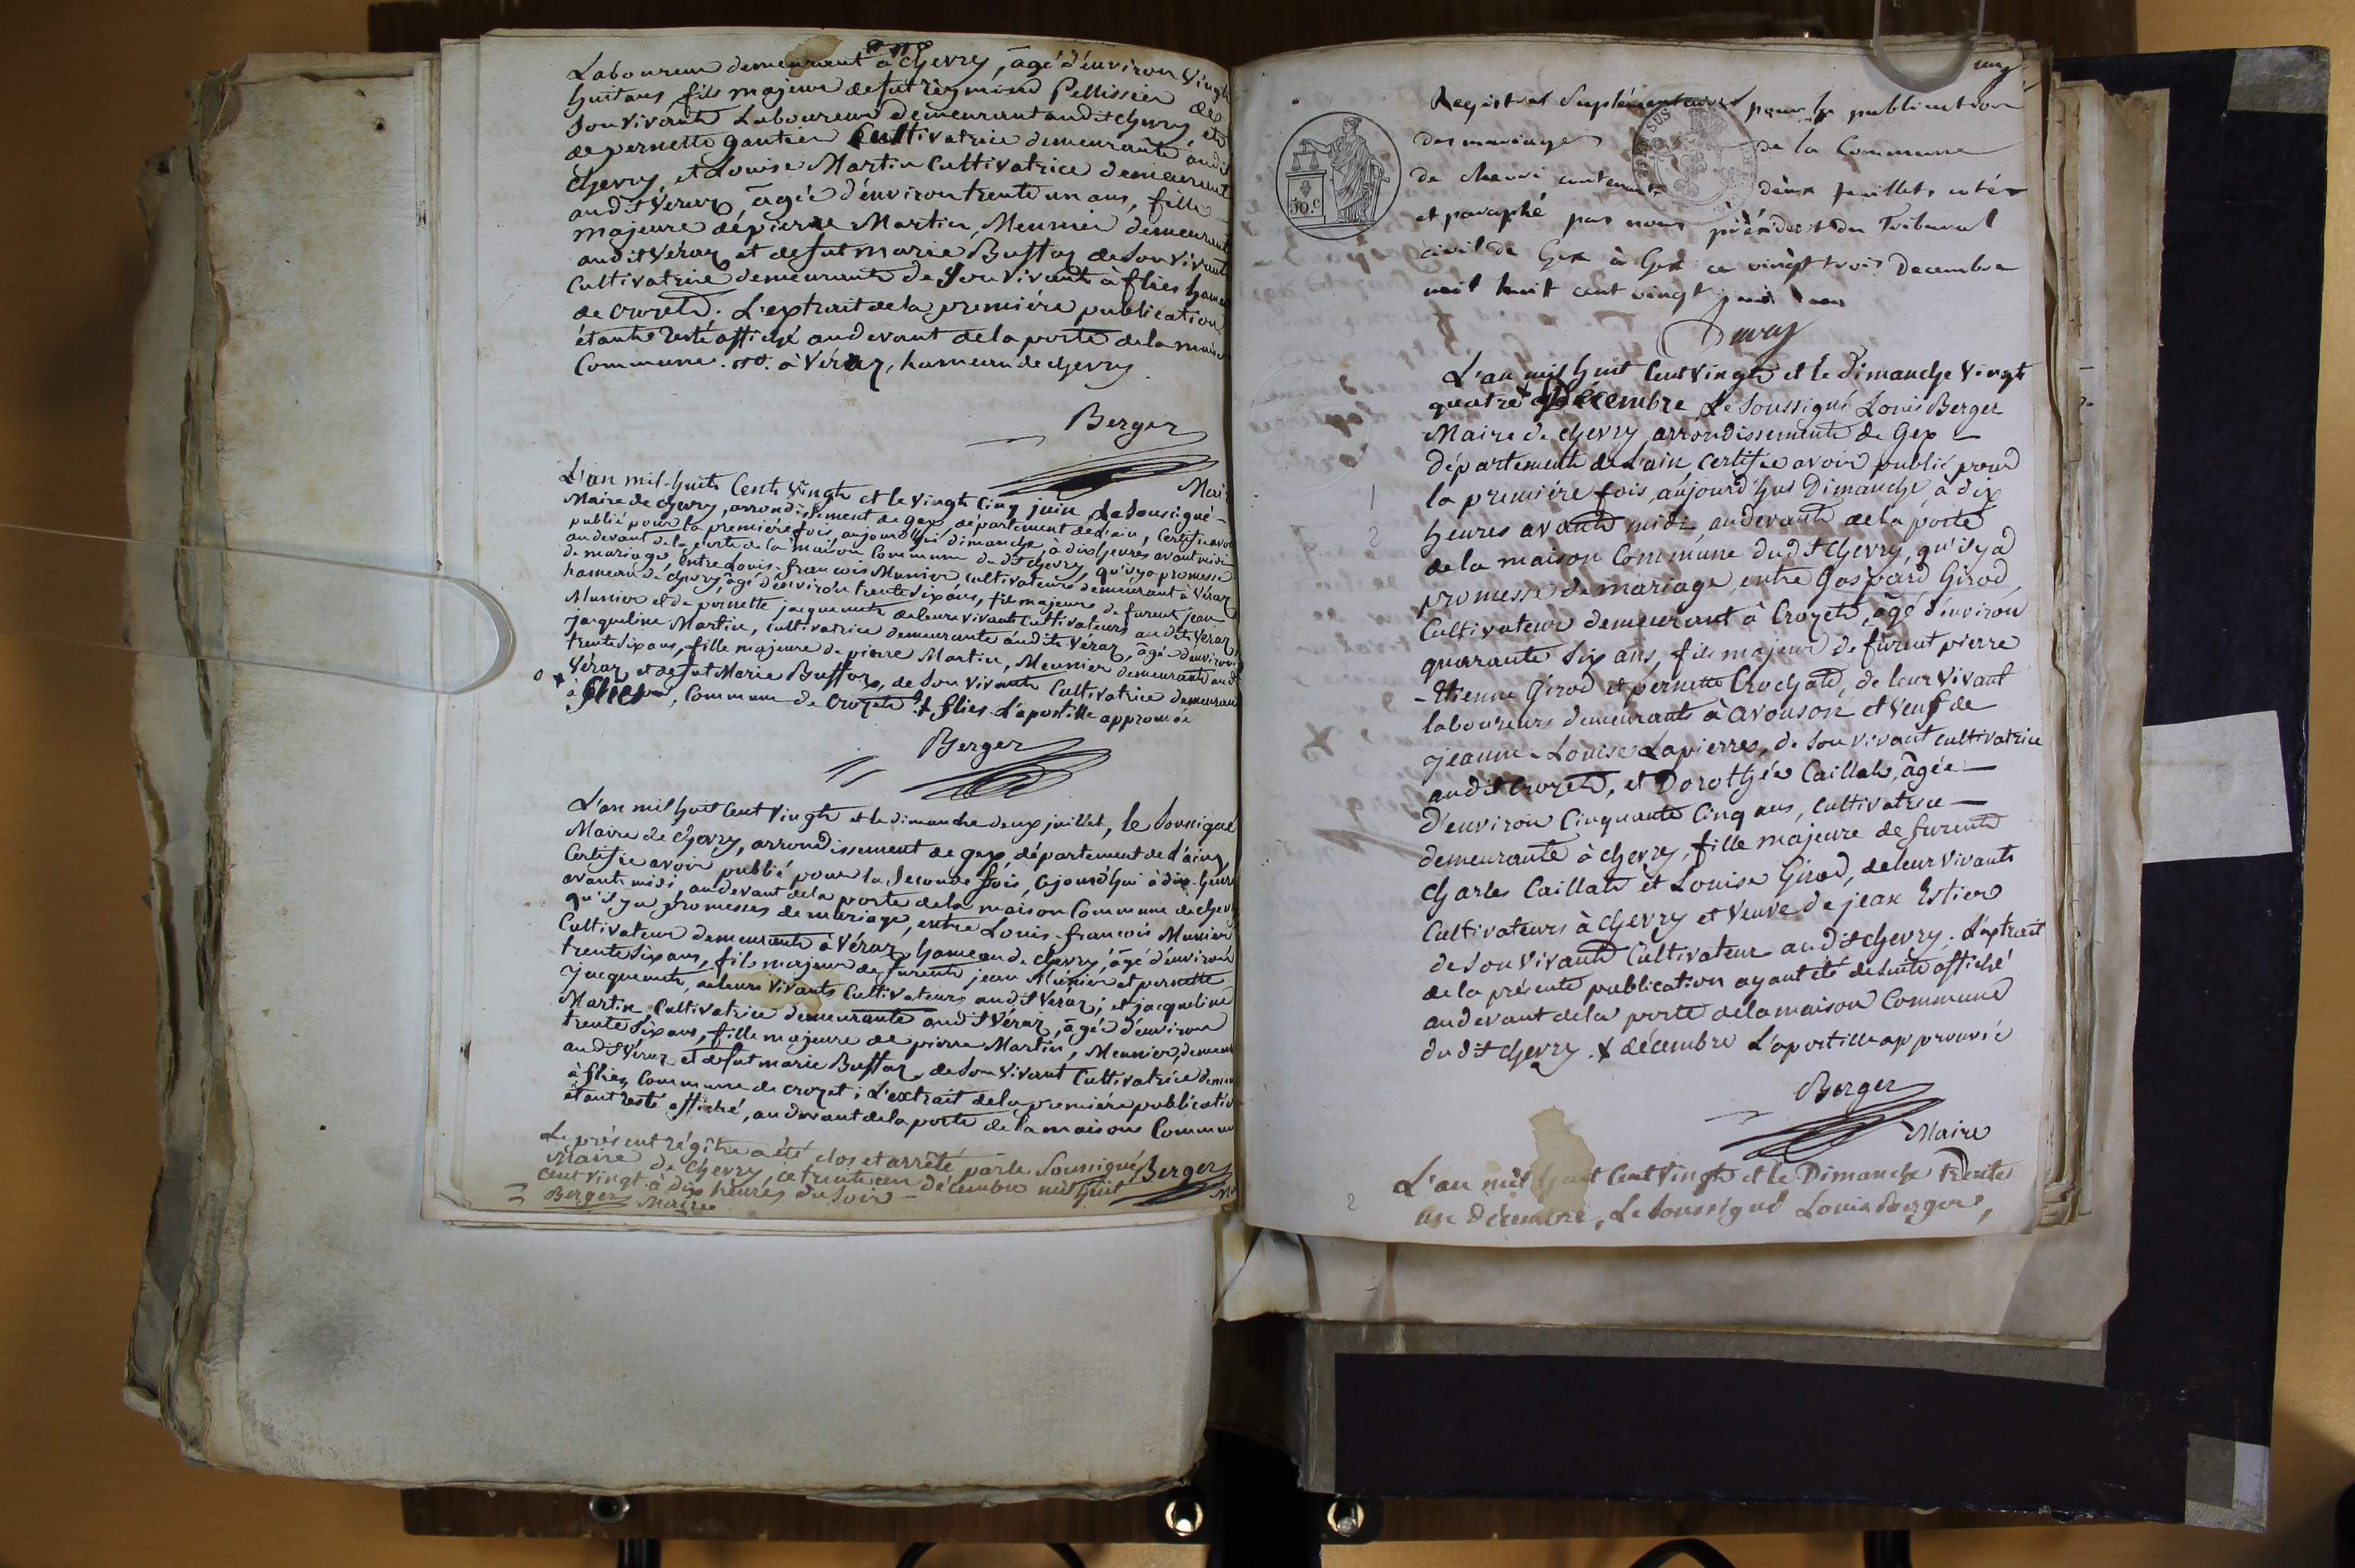 Laboureur demeurant à chevry, âgé d'environ vingt
huit ans, fils majeur de fut Reymond Pellissier de
Son vivant Laboureur demeurant audit chevry, et
de pernette gautier Cultivatrice demeurante audit
chevry, et Louise Martin Cultivatrice demeurant
audit Véraz, âgée d'environ trente un ans, fille
majeure de pierre Martin, Meunier demeurant
audit Véraz et de fut marie Buffaz de Son vivant
Cultivatrice demeurante de Son vivant à flies hameau
de Crozet. L'extrait de la première publication
étant resté affiché au devant de la porte de la maison
Commune. à Véraz, hameau de chevry
Berger
Maire
L'an mil-huit Cent vingt et le vingt Cinq juin, Le Soussigné
Maire de chevry, arrondissement de gex, département de L'ain, Certifie avoir
publié pour la première fois, aujourd'hui dimanche, à dix heures avant midi
au devant de la porte de la maison Commune du dt chevry, qu'il y a promesse
de mariage, entre Louis-françois Munier, Cultivateur demeurant à Véraz
hameau de chevry, âgé d'environ trente Six ans, fils majeur de furent jean
Munier et de pernette jacquemet de leurs vivants Cultivateurs audit Véraz,
jaqueline Martin, Cultivatrice demeurante audit Véraz, âgée d'environ
trente Six ans, fille majeure de pierre Martin, Meunier demeurant audit
Véraz, et de fut Marie Buffaz, de Son vivant Cultivatrice demeurant
à flies, Commune de Crozet. + flies. L'apostille approuvée
Berger
L'an mil huit Cent vingt et le dimanche deux juillet, le Soussigné
Maire de chevry, arrondissement de gex, département de L'ain,
Certifie avoir publié pour la Seconde fois, cejourd'hui à dix heures
avant midi, au devant de la porte de la maison Commune de chevry
qu'il y a promesses de mariage, entre Louis-françois Munier
Cultivateur demeurant à Véraz, hameau de chevry, âgé d'environ
trente Six ans, fils majeur de furent jean Munier et pernette
jacquemet, de leurs vivants Cultivateurs audit Véraz; et jacqueline
Martin Cultivatrice demeurante audit Véraz, âgée d'environ
trente Six ans, fille majeure de pierre Martin, Meunier, demeurant
audit Véraz et de fut marie Buffaz de Son vivant Cultivatrice demeurant
à flies, Commune de crozet; L'extrait de la première publication
étant resté affiché, au devant de la porte de la maison Commune
Le présent régitre a été clos et arrêté par le Soussigné Berger
Maire de chevry, ce trente un décembre mil huit
cent vingt à dix heures du Soir
Berger Maire
un
Registre Suplémentaire pour la publication
des mariages de la Commune
de chevri contenant deux feuillets cotés
et paraphé par nous président du Tribunal
civil de Gex à Gex ce vingt trois Decembre
mil huit cent vingt
50.c
L'an mil huit Cent vingt et le dimanche vingt
quatre + Décembre Le Soussigné Louis Berger
Maire de chevry, arrondissement de Gex
département de L'ain, Certifie avoir publié pour
la première fois, aujourd'hui Dimanche à dix
heures avant midi, au devant de la porte
de la maison Commune dud t chevry, qu'il y a
promesse de mariage, entre Gaspard Girod,
Cultivateur demeurant à Crozet, âgé d'environ
quarante Six ans, fils majeur de furent pierre
-Etienne Girod et pernette Crochat, de leur vivant
laboureurs demeurants à avouson et veuf de
jeanne-Louise Lapierre, de Son vivant cultivatrice
audit Crozet, et Dorothée Caillat, âgée
d'environ Cinquante Cinq ans, Cultivatrice
demeurante à chevry, fille majeure de furent
Charles Caillat et Louise Girod, de leur vivants
Cultivateurs à chevry et veuve de jean Estier
de Son vivant Cultivateur audit chevry. L'extrait
de la présente publication ayant été de Suite affiché
au devant de la porte de la maison Commune
dudit chevry. + décembre L'apostille approuvée
Berger
Maire
L'an mil huit Cent vingt et le Dimanche trente
un décembre, Le Soussigné Louis Berger,